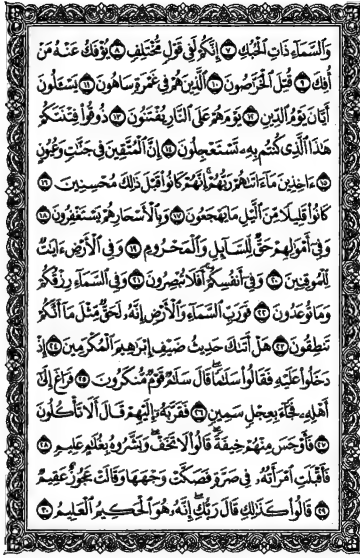 وَٱلسَّمَآءِ ذَاتِ ٱلْحُبُكِ ٧ إِنَّكُمْ لَفِى قَوْلٍ مُّخْتَلِفٍ ٨ يُؤْفَكُ عَنْهُ مَنْ
أُفِكَ ٩ قُتِلَ ٱلْخَرَّٰصُونَ ١٠ ٱلَّذِينَ هُمْ فِى غَمْرَةٍ سَاهُونَ ١١ يَسْـَٔلُونَ
أَيَّانَ يَوْمُ ٱلدِّينِ ١٢ يَوْمَ هُمْ عَلَى ٱلنَّارِ يُفْتَنُونَ ١٣ ذُوقُوا۟ فِتْنَتَكُمْ
هَٰذَا ٱلَّذِى كُنتُم بِهِۦ تَسْتَعْجِلُونَ ١٤ إِنَّ ٱلْمُتَّقِينَ فِى جَنَّٰتٍ وَعُيُونٍ
١٥ ءَاخِذِينَ مَآ ءَاتَىٰهُمْ رَبُّهُمْ إِنَّهُمْ كَانُوا۟ قَبْلَ ذَٰلِكَ مُحْسِنِينَ ١٦
كَانُوا۟ قَلِيلًا مِّنَ ٱلَّيْلِ مَا يَهْجَعُونَ ١٧ وَبِٱلْأَسْحَارِ هُمْ يَسْتَغْفِرُونَ ١٨
وَفِىٓ أَمْوَٰلِهِمْ حَقٌّ لِّلسَّآئِلِ وَٱلْمَحْرُومِ ١٩ وَفِى ٱلْأَرْضِ ءَايَٰتٌ
لِّلْمُوقِنِينَ ٢٠ وَفِىٓ أَنفُسِكُمْ أَفَلَا تُبْصِرُونَ ٢١ وَفِى ٱلسَّمَآءِ رِزْقُكُمْ
وَمَا تُوعَدُونَ ٢٢ فَوَرَبِّ ٱلسَّمَآءِ وَٱلْأَرْضِ إِنَّهُۥ لَحَقٌّ مِّثْلَ مَآ أَنَّكُمْ
تَنطِقُونَ ٢٣ هَلْ أَتَىٰكَ حَدِيثُ ضَيْفِ إِبْرَٰهِيمَ ٱلْمُكْرَمِينَ ٢٤ إِذْ
دَخَلُوا۟ عَلَيْهِ فَقَالُوا۟ سَلَٰمًا ۖ قَالَ سَلَٰمٌ قَوْمٌ مُّنكَرُونَ ٢٥ فَرَاغَ إِلَىٰٓ
أَهْلِهِۦ فَجَآءَ بِعِجْلٍ سَمِينٍ ٢٦ فَقَرَّبَهُۥٓ إِلَيْهِمْ قَالَ أَلَا تَأْكُلُونَ
٢٧ فَأَوْجَسَ مِنْهُمْ خِيفَةً ۖ قَالُوا۟ لَا تَخَفْ ۖ وَبَشَّرُوهُ بِغُلَٰمٍ عَلِيمٍ ٢٨
فَأَقْبَلَتِ ٱمْرَأَتُهُۥ فِى صَرَّةٍ فَصَكَّتْ وَجْهَهَا وَقَالَتْ عَجُوزٌ عَقِيمٌ
٢٩ قَالُوا۟ كَذَٰلِكِ قَالَ رَبُّكِ ۖ إِنَّهُۥ هُوَ ٱلْحَكِيمُ ٱلْعَلِيمُ ٣٠